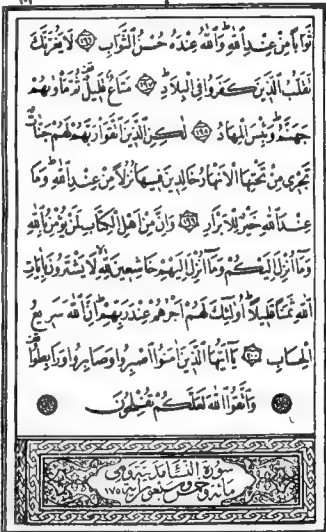 ثَوَابًا مِنْ عِنْدِ اللّٰهِ وَاللّٰهُ عِنْدَهُ حُسْنُ الثَّوَابِ ١٩٦ لَا يَغُرَّنَّكَ
تَقَلُّبُ الَّذِينَ كَفَرُوا فِي الْبِلَادِ ١٩٧ مَتَاعٌ قَلِيلٌ ثُمَّ مَأْوٰيهُمْ
جَهَنَّمُ وَبِئْسَ الْمِهَادُ ١٩٨ لٰكِنِ الَّذِينَ اتَّقَوْا رَبَّهُمْ لَهُمْ جَنَّاتٌ
تَجْرِي مِنْ تَحْتِهَا الْاَنْهَارُ خَالِدِينَ فِيهَا نُزُلًا مِنْ عِنْدِ اللّٰهِ وَمَا
عِنْدَ اللّٰهِ خَيْرٌ لِلْاَبْرَارِ ١٩٩ وَاِنَّ مِنْ اَهْلِ الْكِتَابِ لَمَنْ يُؤْمِنُ بِاللّٰهِ
وَمَا اُنْزِلَ اِلَيْكُمْ وَمَا اُنْزِلَ اِلَيْهِمْ خَاشِعِينَ لِلّٰهِ لَا يَشْتَرُونَ بِاٰيَاتِ
اللّٰهِ ثَمَنًا قَلِيلًا اُولٰئِكَ لَهُمْ اَجْرُهُمْ عِنْدَ رَبِّهِمْ اِنَّ اللّٰهَ سَرِيعُ
الْحِسَابِ ٢٠٠ يَا اَيُّهَا الَّذِينَ اٰمَنُوا اصْبِرُوا وَصَابِرُوا وَرَابِطُوا
وَاتَّقُوا اللّٰهَ لَعَلَّكُمْ تُفْلِحُونَ
سورة النساء مدنية وهي
مائة وخمس وسبعون آية ١٧٥